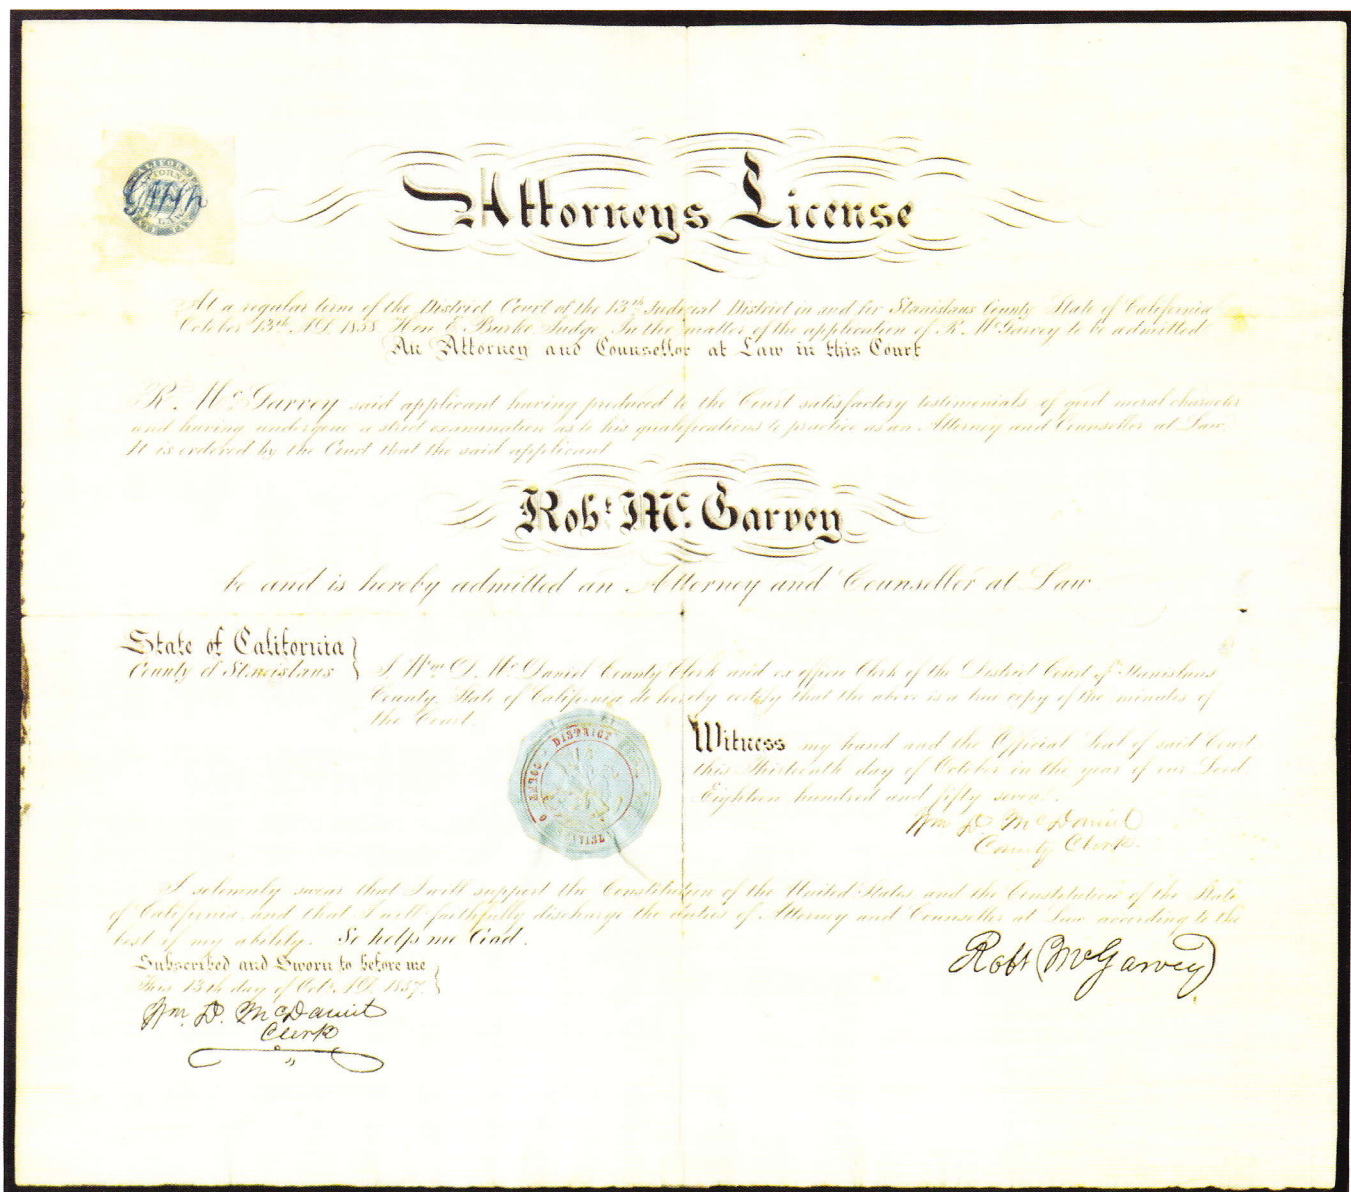 CALIFORNIA
ATTORNEY
AT LAW
Attorneys License
At a regular term of the District Court of the 13th Judicial District in and for Stanislaus County State of California
October 13th A.D. 1858 Hon E. Burke Judge. In the matter of the application of R. McGarvey to be admitted
An Attorney and Counsellor at Law in this Court
R. McGarvey said applicant having produced to the Court satisfactory testimonials of good moral character
and having undergone a strict examination as to his qualifications to practice as an Attorney and Counsellor at Law.
It is ordered by the Court that the said applicant
Robt. Mc. Garvey
be and is hereby admitted an Attorney and Counsellor at Law
State of California
County of Stanislaus
I Wm D. McDaniel County Clerk and ex officio Clerk of the District Court of Stanislaus
County, State of California do hereby certify that the above is a true copy of the minutes of
the Court.
DISTRICT
Witness my hand and the Official Seal of said Court
this Thirteenth day of October in the year of our Lord
Eighteen hundred and fifty seven.
Wm D. McDaniel
County Clerk.
I solemnly swear that I will support the Constitution of the United States, and the Constitution of the State
of California, and that I will faithfully discharge the duties of Attorney and Counsellor at Law according to the
best of my ability. So helps me God.
Robt McGarvey
Subscribed and Sworn to before me
This 13th day of Oct. A.D. 1857.
Wm. D. McDaniel
Clerk